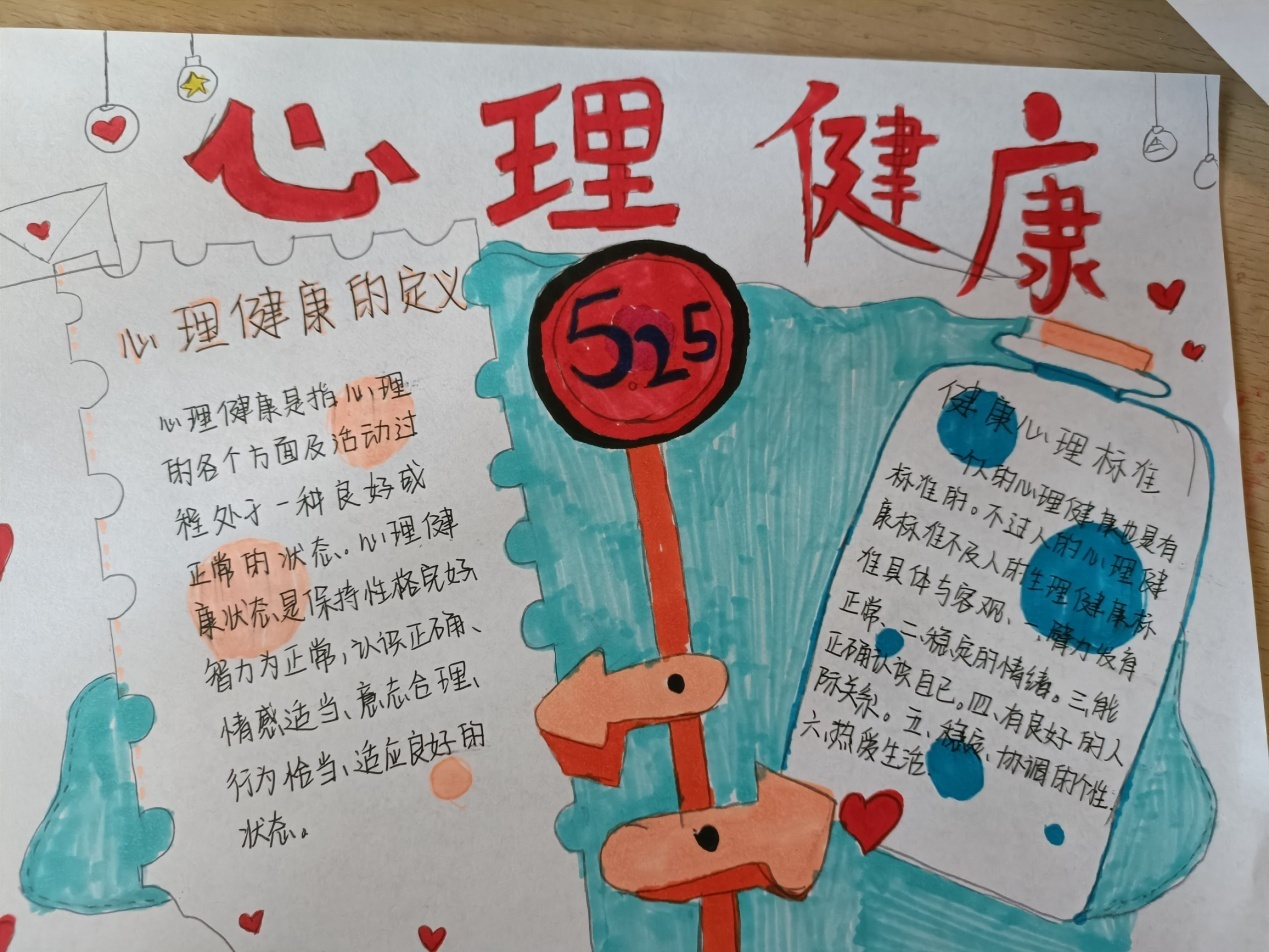 心理健康
心理健康的定义
心理健康是指心理
的各个方面及活动过
程处于一种良好或
正常的状态。心理健
康状态是保持性格完好
智力为正常,认识正确、
情感适当、意志合理、
行为恰当、适应良好的
状态。
525
健康心理标准
一个人的心理健康也是有
标准的。不过人的心理健
康标准不及人的生理健康标
准具体与客观、一、智力发育
正常、二、稳定的情绪。三、能
正确认识自己。四、有良好的人
际关系。五、稳定、协调的个性.
六、热爱生活.